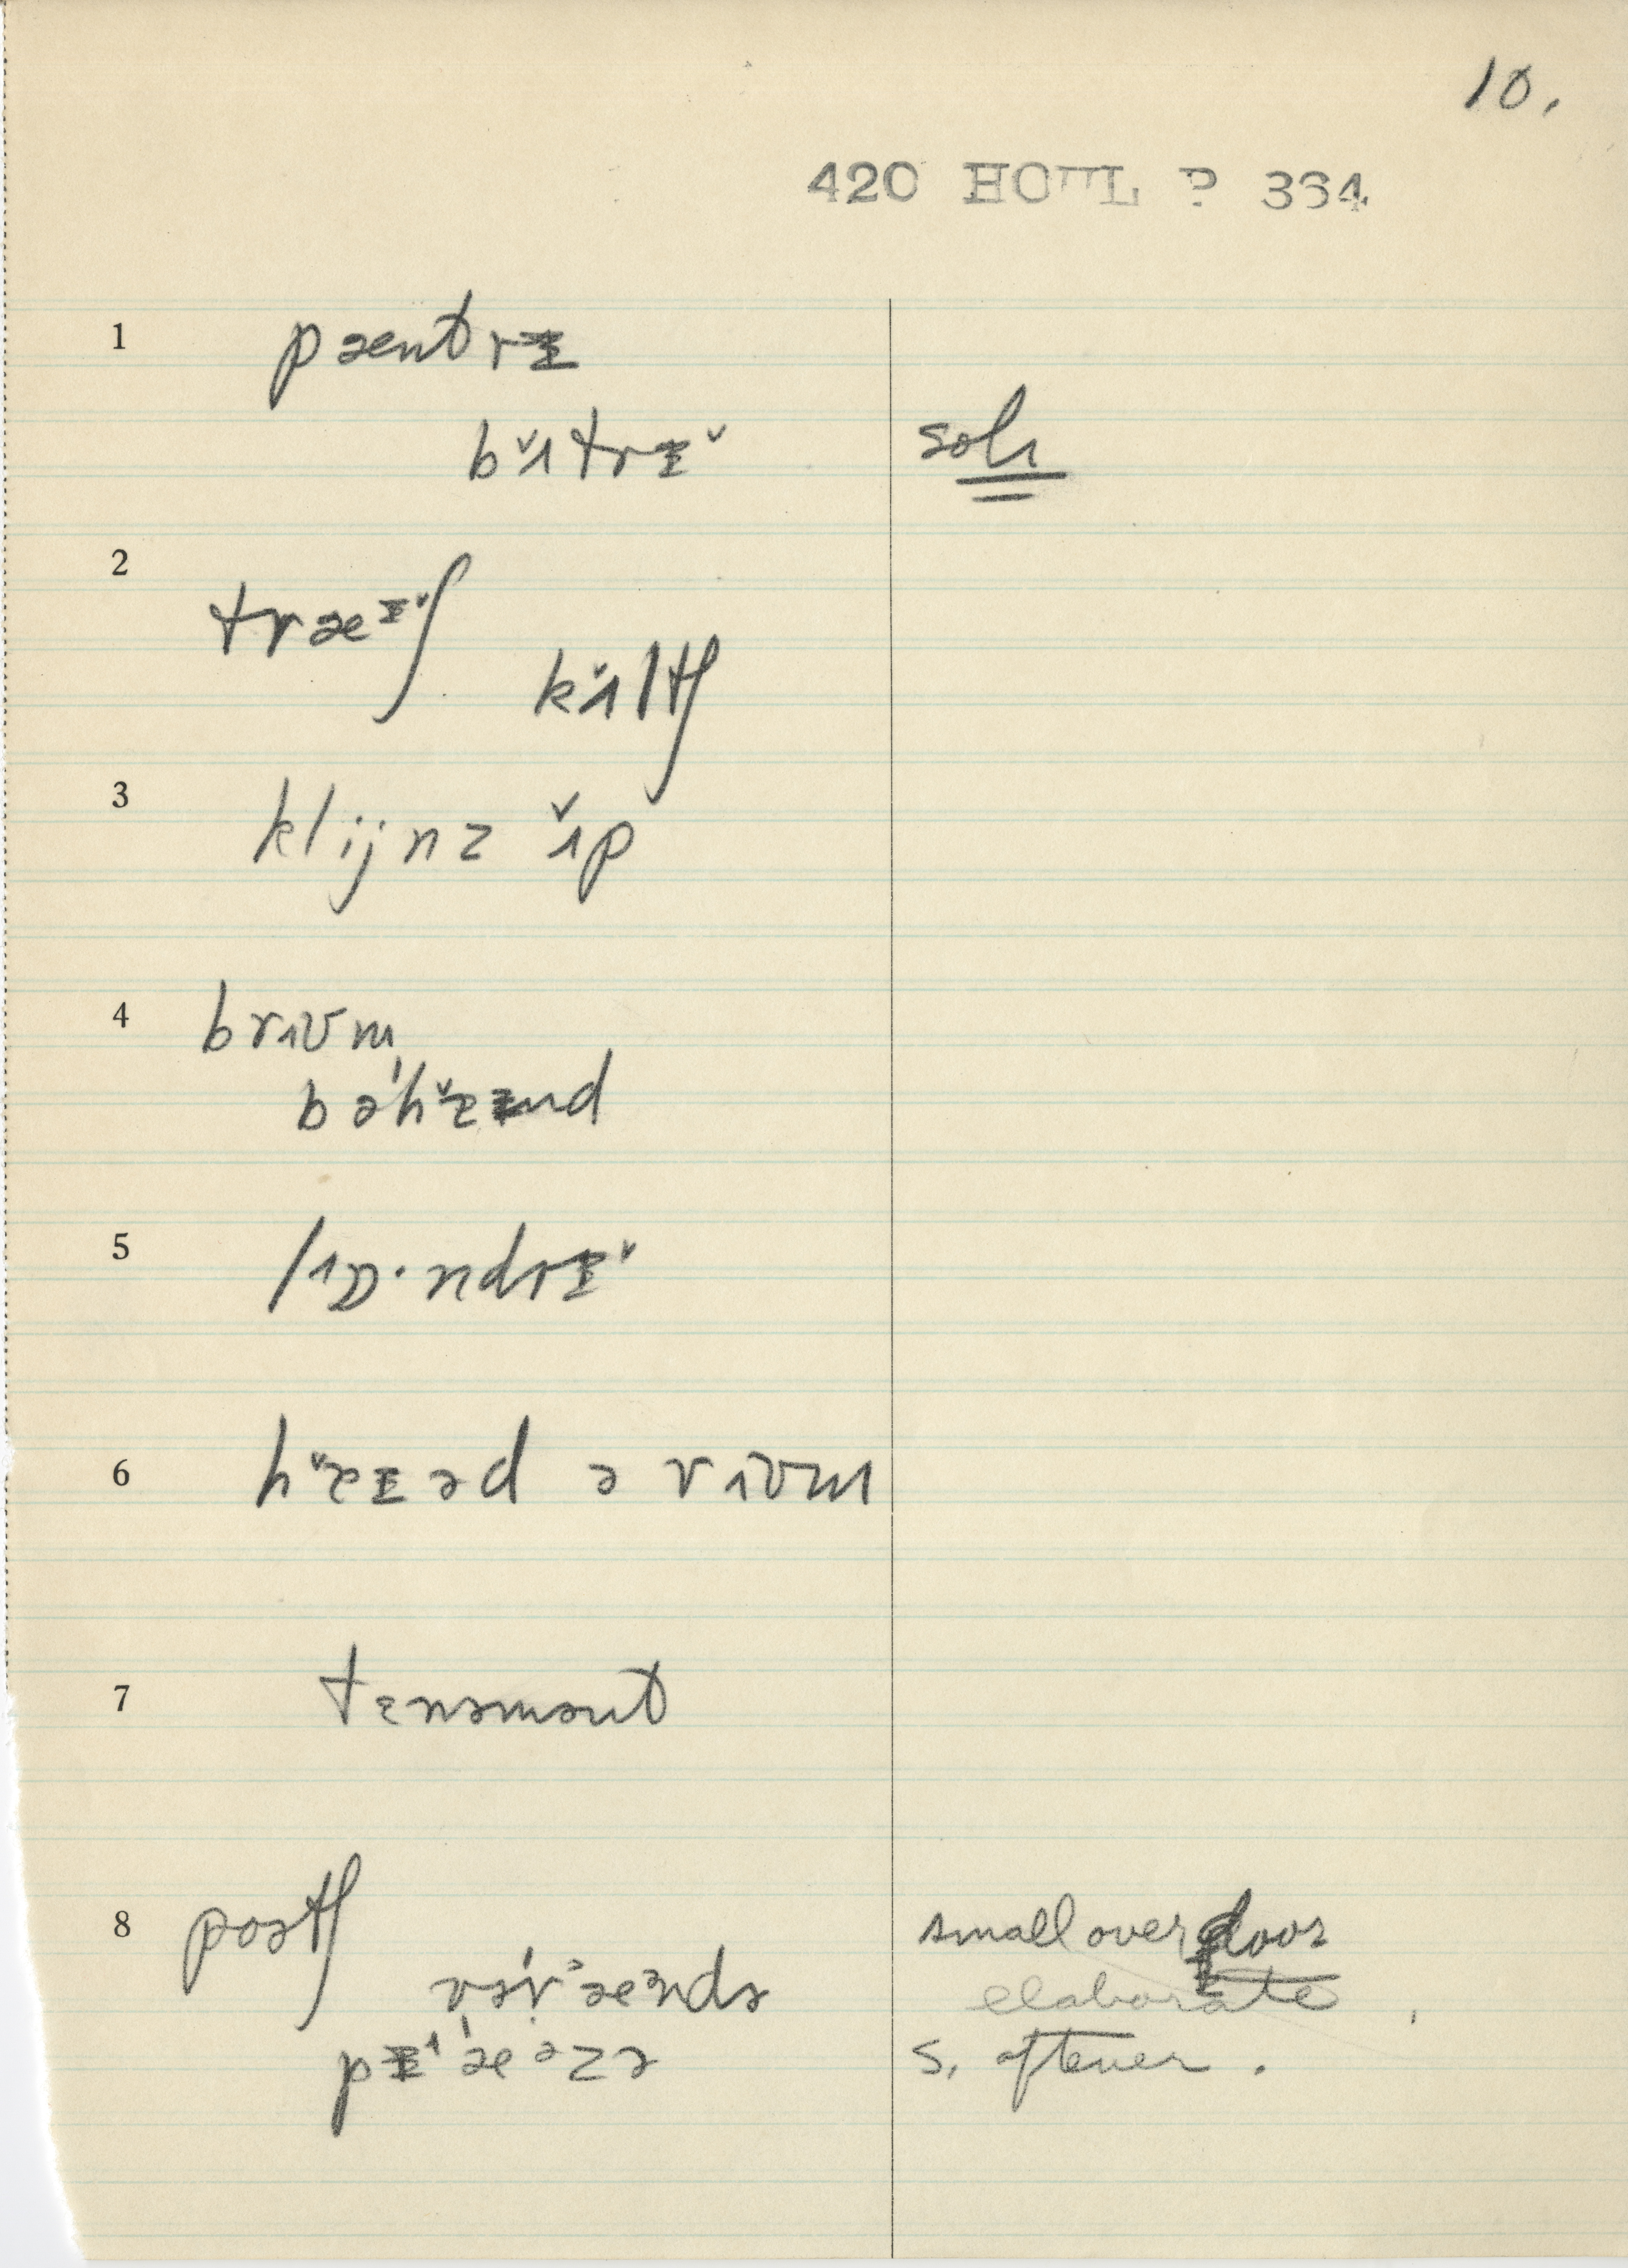 10.
420 HOUL P 364
1 pæntrɪ
bˇɪtrɪˇ solɪ
2 træɪˇʃ
kˇɪltʃ
3 klijnz ˇɪp
4 brɪʊm
bəˈhˇɛɪnd
5 lɪɒ·ndrɪˇ
6 hˇɛɪəd ə rɪʊm
7 tɛnəmənt
8 poətʃ small over door
vərˈæᵊndə elaborate
pɪˈæᵊzə s. oftener.